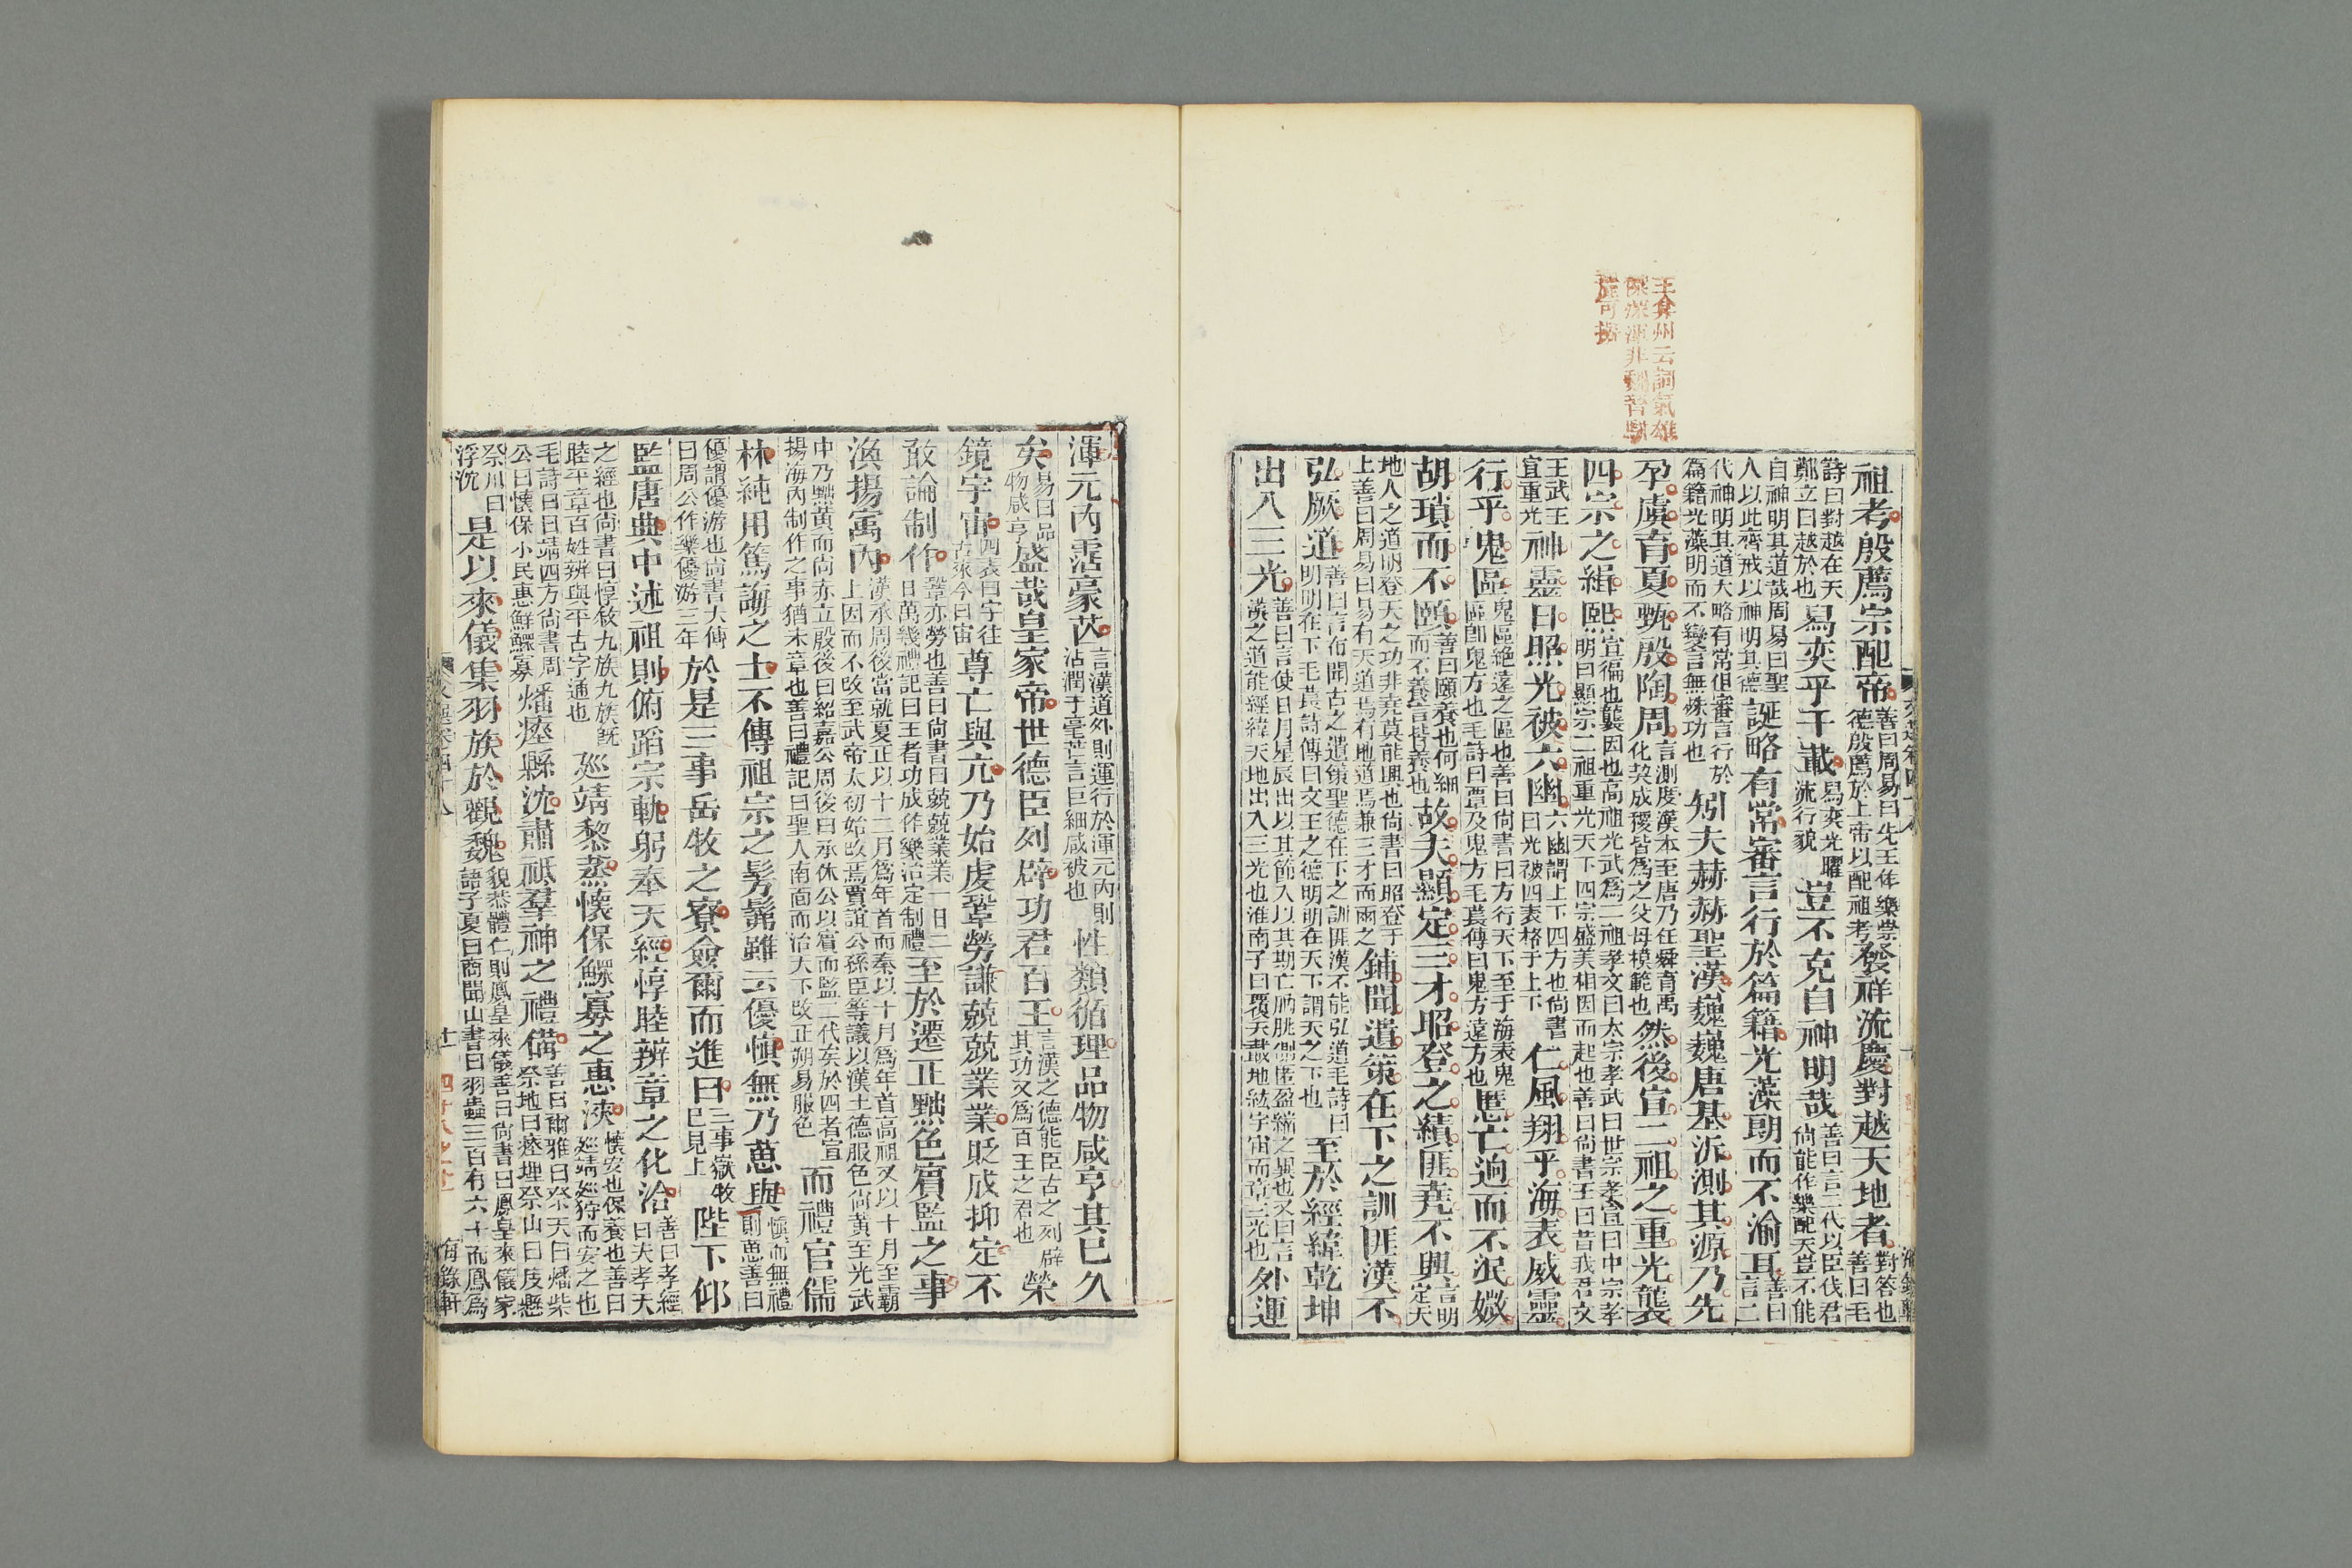 王弇州云詞氣雄
深渾非魏晉
可擬
祖考殷薦宗配帝善曰周易曰先王作樂崇德殷薦於上帝以配祖考發祥流慶對越天地者對答也善曰毛
詩曰對越在天鄭立曰越於也舄奕乎千載舄奕光曜流行貌豈不克自神明哉善曰言二代以臣伐君尚能作樂配天豈不能
自神明其道哉周易曰聖人以此齊戒以神明其德誕略有常審言行於篇籍光藻朗而不渝耳善曰言二
代神明其道大略有常但審言行於篇籍光藻明而不變言無殊功也矧夫赫赫聖漢巍巍唐基泝測其源乃先
孕虞育夏甄殷陶周言測度漢本至唐乃任舜育禹化契成稷皆為之父母模範也然後宣二祖之重光襲
四宗之緝熙宣徧也襲因也高祖光武為二祖孝文曰太宗孝武曰世宗孝宣曰中宗孝明曰顯宗二祖重光天下四宗盛美相因而起也善曰尚書王曰昔我君文
王武王宣重光神靈日照光被六幽六幽謂上下四方也尚書曰光被四表格于上下仁風翔乎海表威靈
行乎鬼區鬼區絕遠之區也善曰尚書曰方行天下至于海表鬼區卽鬼方也毛詩曰覃及鬼方毛萇傳曰鬼方遠方也慝亡迥而不泯㣲
胡瑣而不頤善曰頤養也何細而不養言皆養也故夫顯定三才昭登之績匪堯不興言明定天
地人之道明登天之功非堯莫能興也尚書曰昭登于上善曰周易曰易有天道焉有地道焉兼三才而兩之鋪聞遺策在下之訓匪漢不
弘厥道善曰言布聞古之遺策聖德在下之訓匪漢不能弘道毛詩曰明明在下毛萇詩傳曰文王之德明明在天下謂天之下也至於經緯乾坤
出入三光善曰言使日月星辰出以其節入以其期亡朒朓側匿盈縮之異也又曰言漢之道能經緯天地出入三光也淮南子曰覆天載地紘宇宙而章三光也外運
渾元內霑豪芒言漢道外則運行於渾元內則沾潤于毫芒言巨細咸被也性類循理品物咸亨其已久
矣易曰品物咸亨盛哉皇家帝世德臣列辟功君百王言漢之德能臣古之列辟其功又為百王之君也榮
鏡宇宙四表曰宇往古來今曰宙尊亡與亢乃始虔鞏勞謙兢兢業業貶成抑定不
敢論制作鞏亦勞也善曰尚書曰兢兢業業一日二日萬幾禮記曰王者功成作樂治定制禮至於遷正黜色賓監之事
渙揚寓內漢承周後當就夏正以十二月為年首而秦以十月為年首高祖又以十月至霸上因而不改至武帝太初始改焉賈誼公孫臣等議以漢土德服色尚黃至光武
中乃黜黃而尚赤立殷後曰紹嘉公周後曰承休公以賓而監二代矣於四者宣揚海內制作之事猶未章也善曰禮記曰聖人南面而治天下改正朔易服色而禮官儒
林純用篤誨之士不傳祖宗之髣髴雖云優慎無乃葸與慎而無禮則葸善曰
優謂優游也尚書大傳曰周公作樂優游三年於是三事岳牧之寮僉爾而進曰三事嶽牧巳見上陛下仰
監唐典中述祖則俯蹈宗軌躬奉天經惇睦辨章之化洽善曰孝經曰夫孝天
之經也尚書曰惇敘九族九族旣睦平章百姓辨與平古字通也廵靖黎蒸懷保鰥寡之惠浹懷安也保養也善曰廵靖廵狩而安之也
毛詩曰日靖四方尚書周公曰懷保小民惠鮮鰥寡燔瘞縣沈肅祗羣神之禮備善曰爾雅曰祭天曰燔柴祭地曰瘞埋祭山曰庋懸
祭川曰浮沉是以來儀集羽族於觀魏貌恭體仁則鳳皇來儀善曰尚書曰鳳皇來儀家語子夏曰商聞山書曰羽蟲三百有六十而鳳為
十一
海錄軒